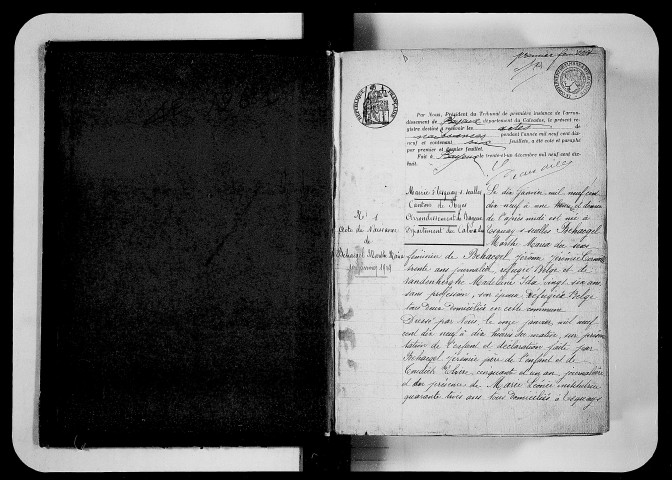 premier feuillet
RÉPUBLIQUE FRANÇAISE
Par Nous, Président du Tribunal de première instance de l'arron-
dissement de Bayeux département du Calvados, le présent re-
gistre destiné à recevoir les actes de
naissances pendant l'année mil neuf cent dix-
neuf et contenant feuillets, a été coté et paraphé
par premier et dernier feuillet.
Fait à Bayeux le trente-et-un décembre mil neuf cent dix-
huit.
Mairie d'Esquay s. seulles
Canton de Ryes
Arrondissement de Bayeux
Département du Calvados
N° 1
Acte de Naissance
de
Behaegel Marthe Maria
10 janvier 1919
Le dix janvier mil neuf cent
dix neuf à une heure et demie
de l'après midi est née à
Esquay s. seulles Behaegel
Marthe Maria du sexe
féminin de Behaegel, Jérémie
trente ans journalier, réfugié Belge et de
Vandenberghe Madeleine Ida vingt six ans,
sans profession, son épouse, Réfugiée Belge
tous deux domiciliés en cette commune
Dressé par Nous, le onze janvier, mil neuf
cent dix neuf à dix heures du matin, sur présen
tation de l'enfant et déclaration faite par
Behaegel Jérémie père de l'enfant et de
cinquante et un ans, journalière
et en présence de Marie Léonce institutrice
quarante trois ans tous domiciliés à Esquay